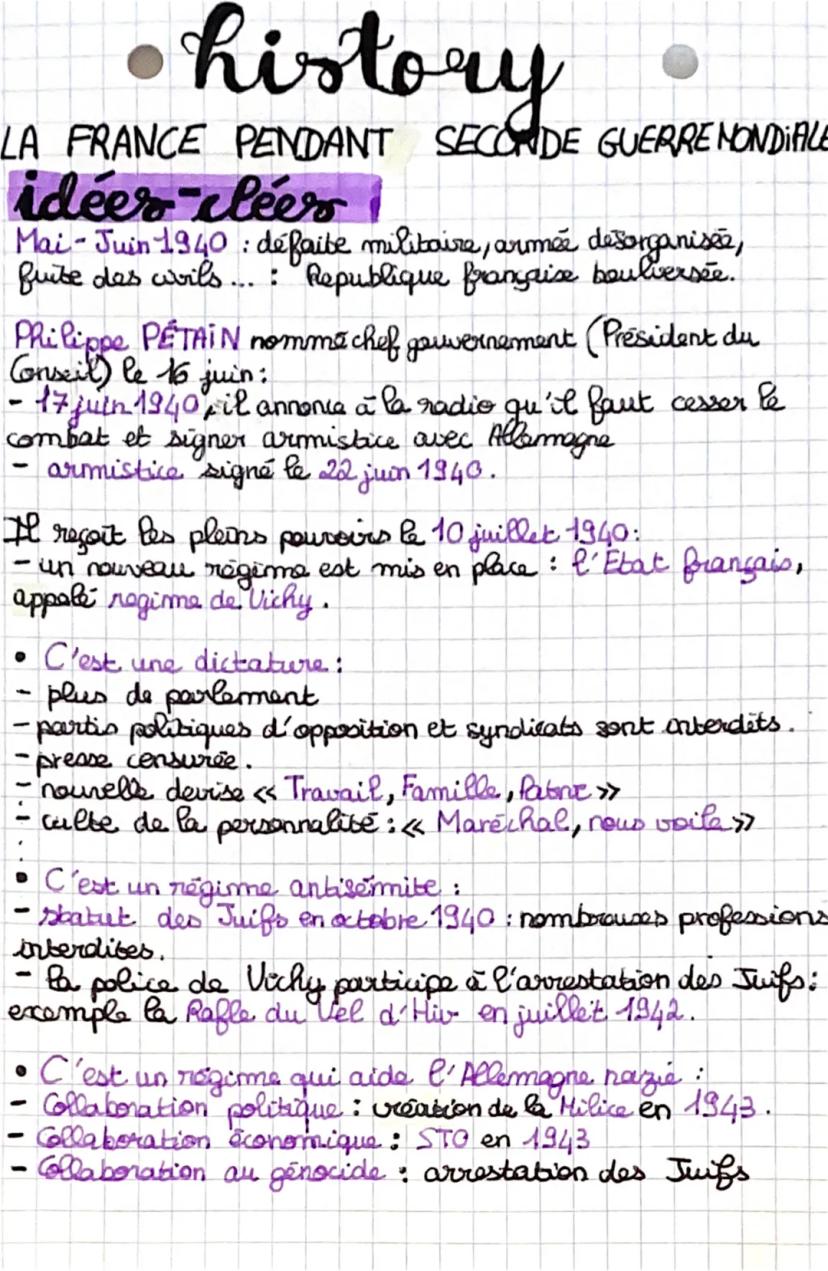 history
LA FRANCE PENDANT SECONDE GUERRE MONDIALE
idées-clées
Mai-Juin 1940 : défaite militaire, armée désorganisée,
fuite des civils ... : République française boulversée.
Philippe PÉTAIN nommé chef gouvernement (Président du
Conseil) le 16 juin :
- 17 juin 1940, il annonce à la radio qu'il faut cesser le
combat et signer armistice avec Allemagne
- armistice signé le 22 juin 1940.
Il reçoit les pleins pouvoirs le 10 juillet 1940 :
- un nouveau régime est mis en place : l'État français,
appelé regime de Vichy.
• C'est une dictature :
- plus de parlement
- partis politiques d'opposition et syndicats sont interdits.
- presse censurée.
- nouvelle devise << Travail, Famille, Patrie >>
- culte de la personnalité : << Maréchal, nous voila >>
• C'est un régime antisémite :
- statut des Juifs en octobre 1940 : nombreuses professions
interdites.
- la police de Vichy participe à l'arrestation des Juifs :
exemple la Rafle du Vel d'Hiv en juillet 1942.
• C'est un régime qui aide l'Allemagne nazie :
- Collaboration politique : création de la Milice en 1943.
- Collaboration économique : STO en 1943
- Collaboration au génocide : arrestation des Juifs